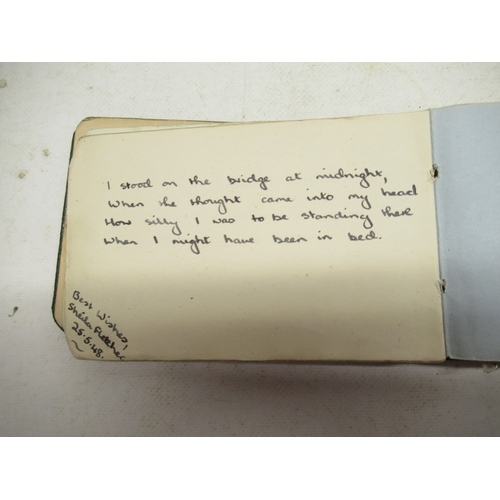 I stood on the bridge at midnight,
When the thought came into my head
How silly I was to be standing there
When I might have been in bed.
Best Wishes,
Sheila Fletcher
25.5.43.